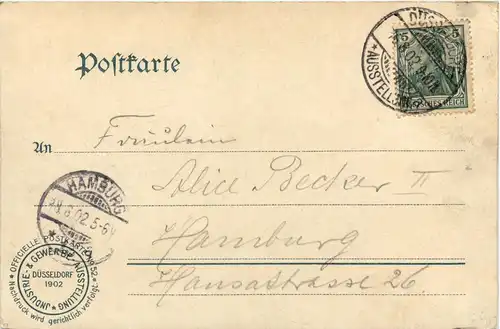 Postkarte
5 5
DÜSS
AUSSTELLUNG
8.02.
REICH
An
Fräulein
Alice Becker II
Hamburg
Hansastrasse 26.
HAMBURG
8.02.5-6
OFFICIELLE POSTKARTE No 52
Nachdruck wird gerichtlich verfolgt.
INDUSTRIE- & GEWERBE-AUSSTELLUNG
DÜSSELDORF
1902